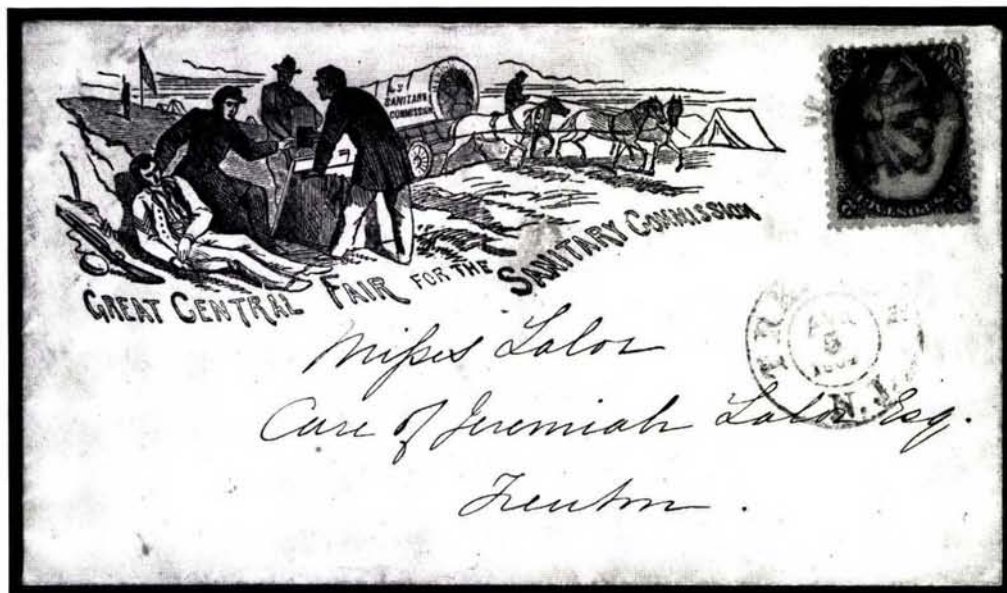 U.S.
SANITARY
COMMISSION
GREAT CENTRAL FAIR FOR THE SANITARY COMMISSION
N.J.
Misses Lalor
Care of Jeremiah Lalor Esq.
Trenton.